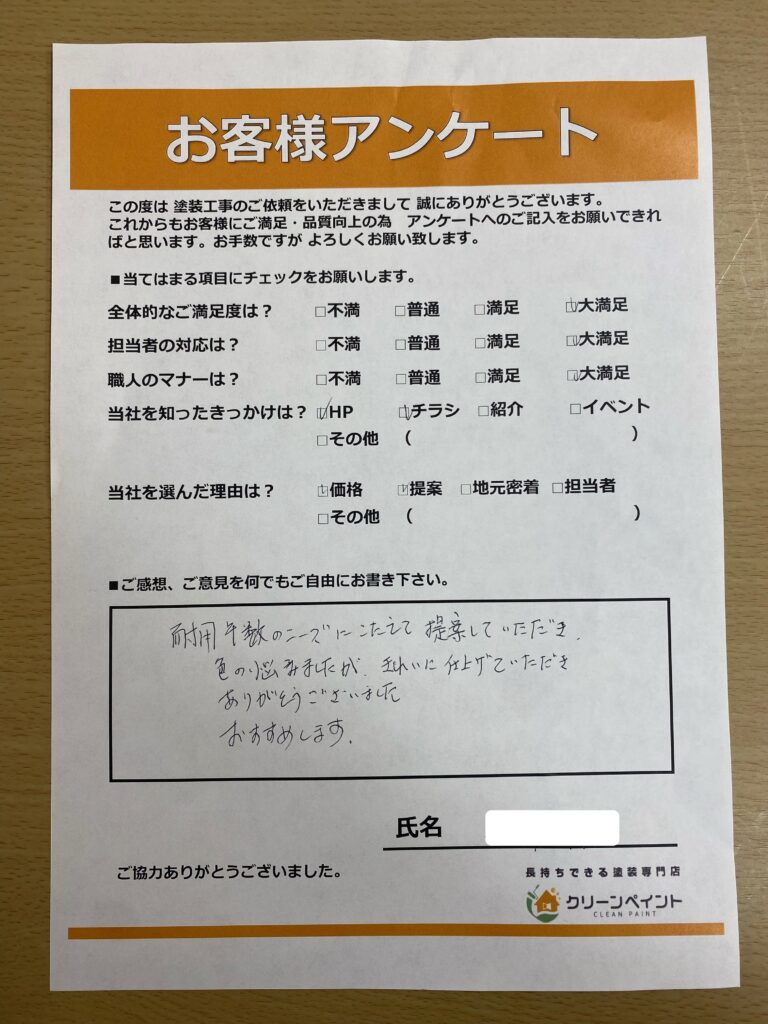 お客様アンケート
この度は 塗装工事のご依頼をいただきまして 誠にありがとうございます。
これからもお客様にご満足・品質向上の為　アンケートへのご記入をお願いできれ
ばと思います。お手数ですが よろしくお願い致します。
■当てはまる項目にチェックをお願いします。
全体的なご満足度は？ □不満 □普通 □満足 ☑大満足
担当者の対応は？ □不満 □普通 □満足 ☑大満足
職人のマナーは？ □不満 □普通 □満足 ☑大満足
当社を知ったきっかけは？ ☑HP ☑チラシ □紹介 □イベント
□その他 （ ）
当社を選んだ理由は？ ☑価格 ☑提案 □地元密着 □担当者
□その他 （ ）
■ご感想、ご意見を何でもご自由にお書き下さい。
耐用年数のニーズにこたえて 提案していただき、
色の悩みましたが、きれいに仕上げていただき
ありがとうございました
おすすめします。
氏名
ご協力ありがとうございました。
長持ちできる塗装専門店
クリーンペイント
CLEAN PAINT